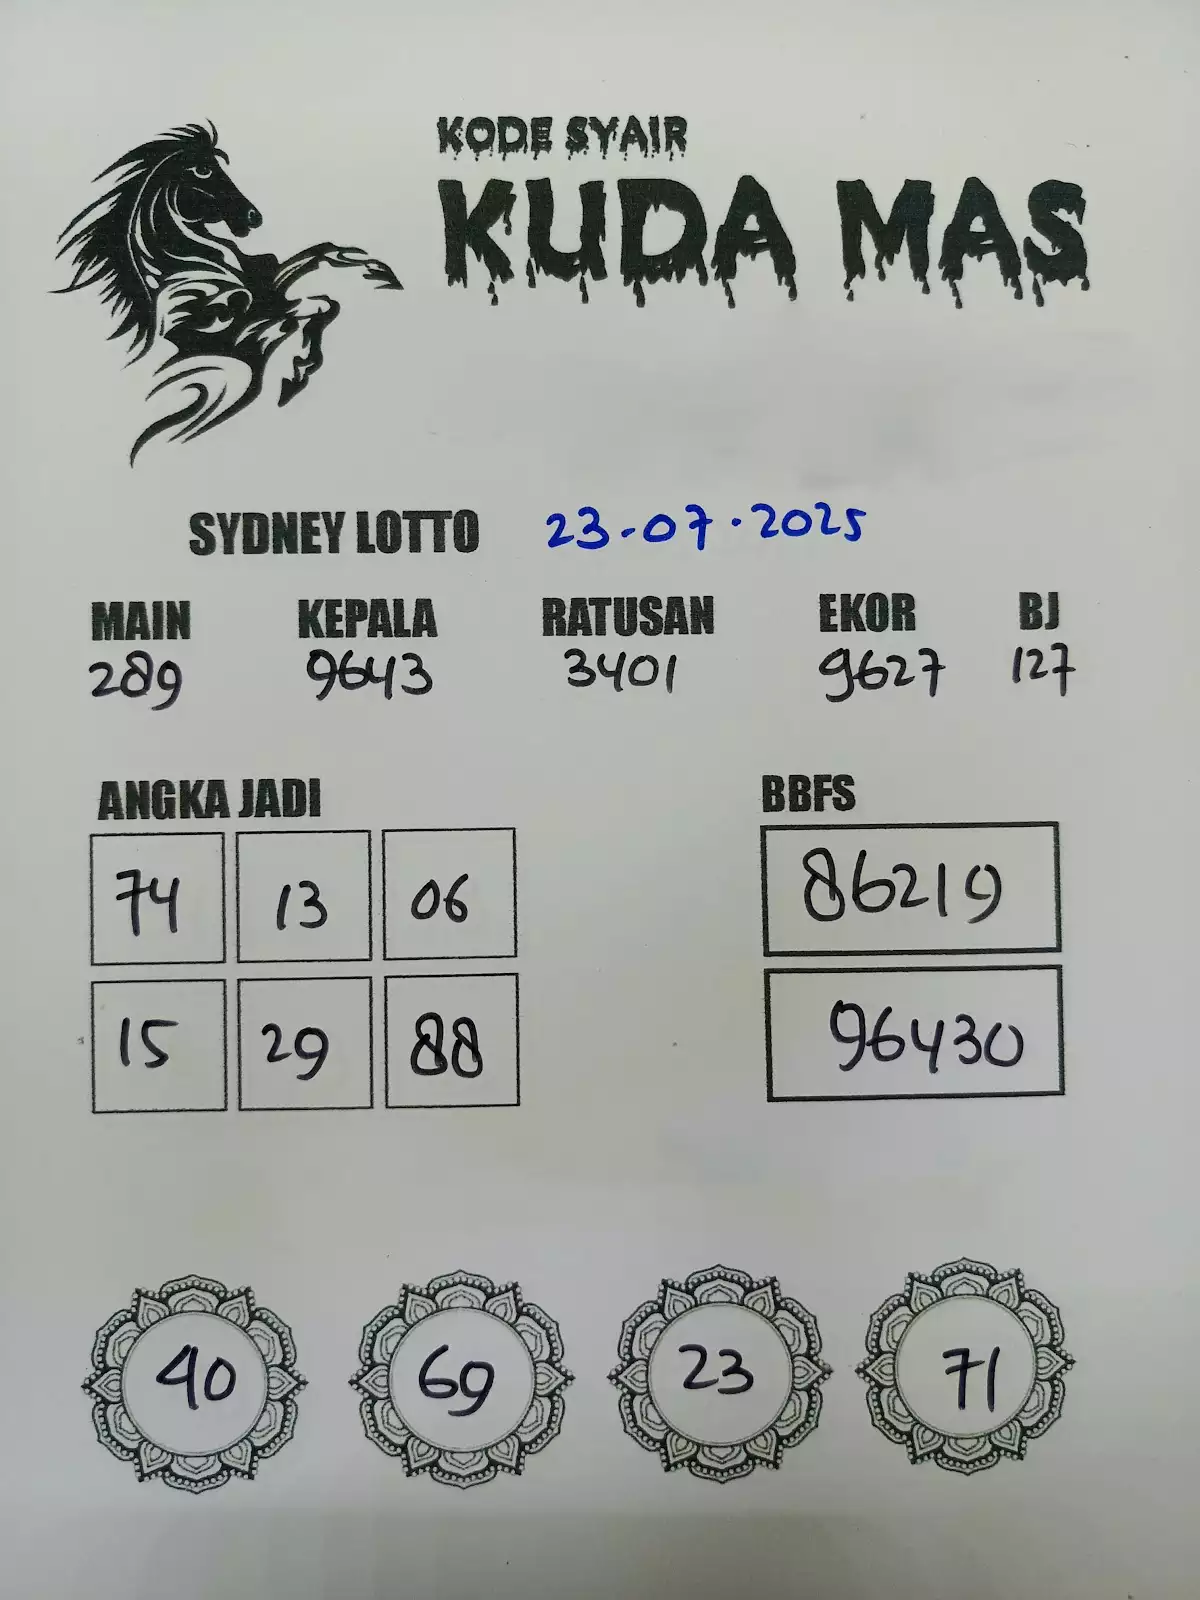 KODE SYAIR
KUDA MAS
SYDNEY LOTTO 23-07.2025
MAIN KEPALA RATUSAN EKOR BJ
289 9643 3401 9627 127
ANGKA JADI BBFS
74 13 06 86219
15 29 88 96430
40 69 23 71